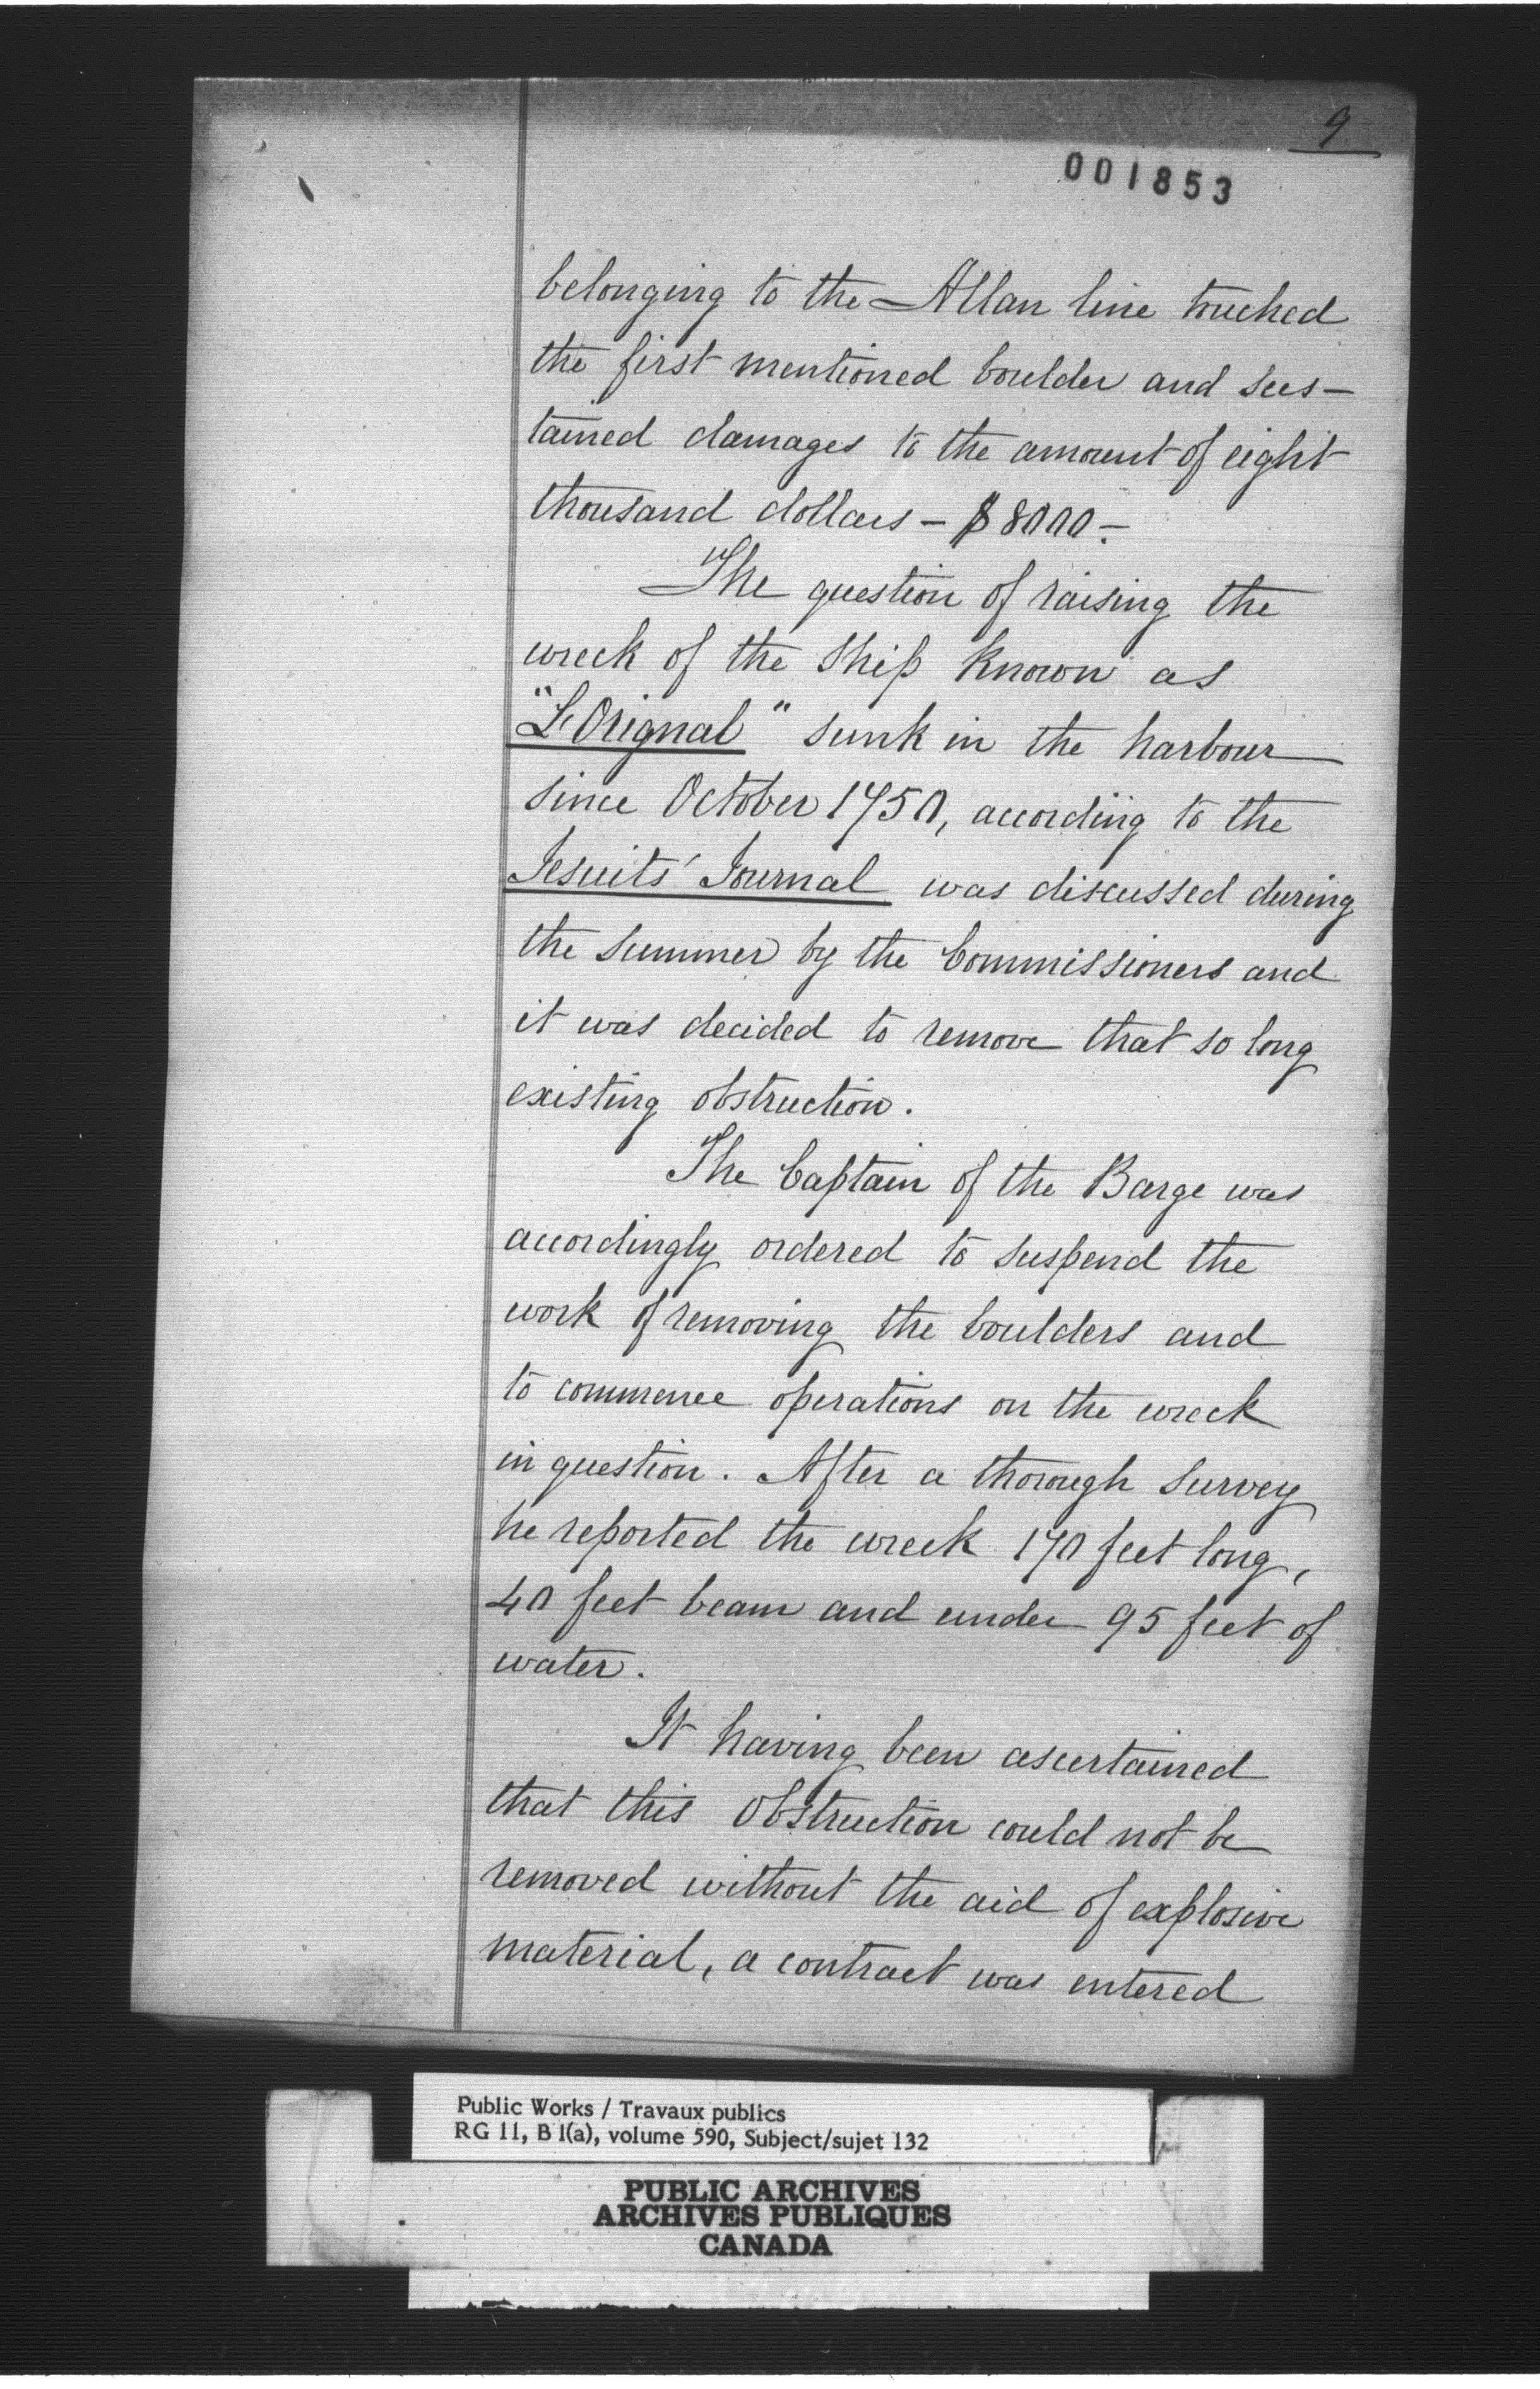 9
001853
belonging to the Allan line touched
the first mentioned boulder and sus-
tained damages to the amount of eight
thousand dollars - $8000 -
The question of raising the
wreck of the ship known as
"L'Orignal" sunk in the harbour
since October 1750, according to the
Jesuits' Journal was discussed during
the summer by the Commissioners and
it was decided to remove that so long
existing obstruction.
The Captain of the Barge was
accordingly ordered to suspend the
work of removing the boulders and
to commence operations on the wreck
in question. After a thorough survey
he reported the wreck 170 feet long,
40 feet beam and under 95 feet of
water.
It having been ascertained
that this obstruction could not be
removed without the aid of explosive
material, a contract was entered
Public Works / Travaux publics
RG 11, B 1(a), volume 590, Subject/sujet 132
PUBLIC ARCHIVES
ARCHIVES PUBLIQUES
CANADA